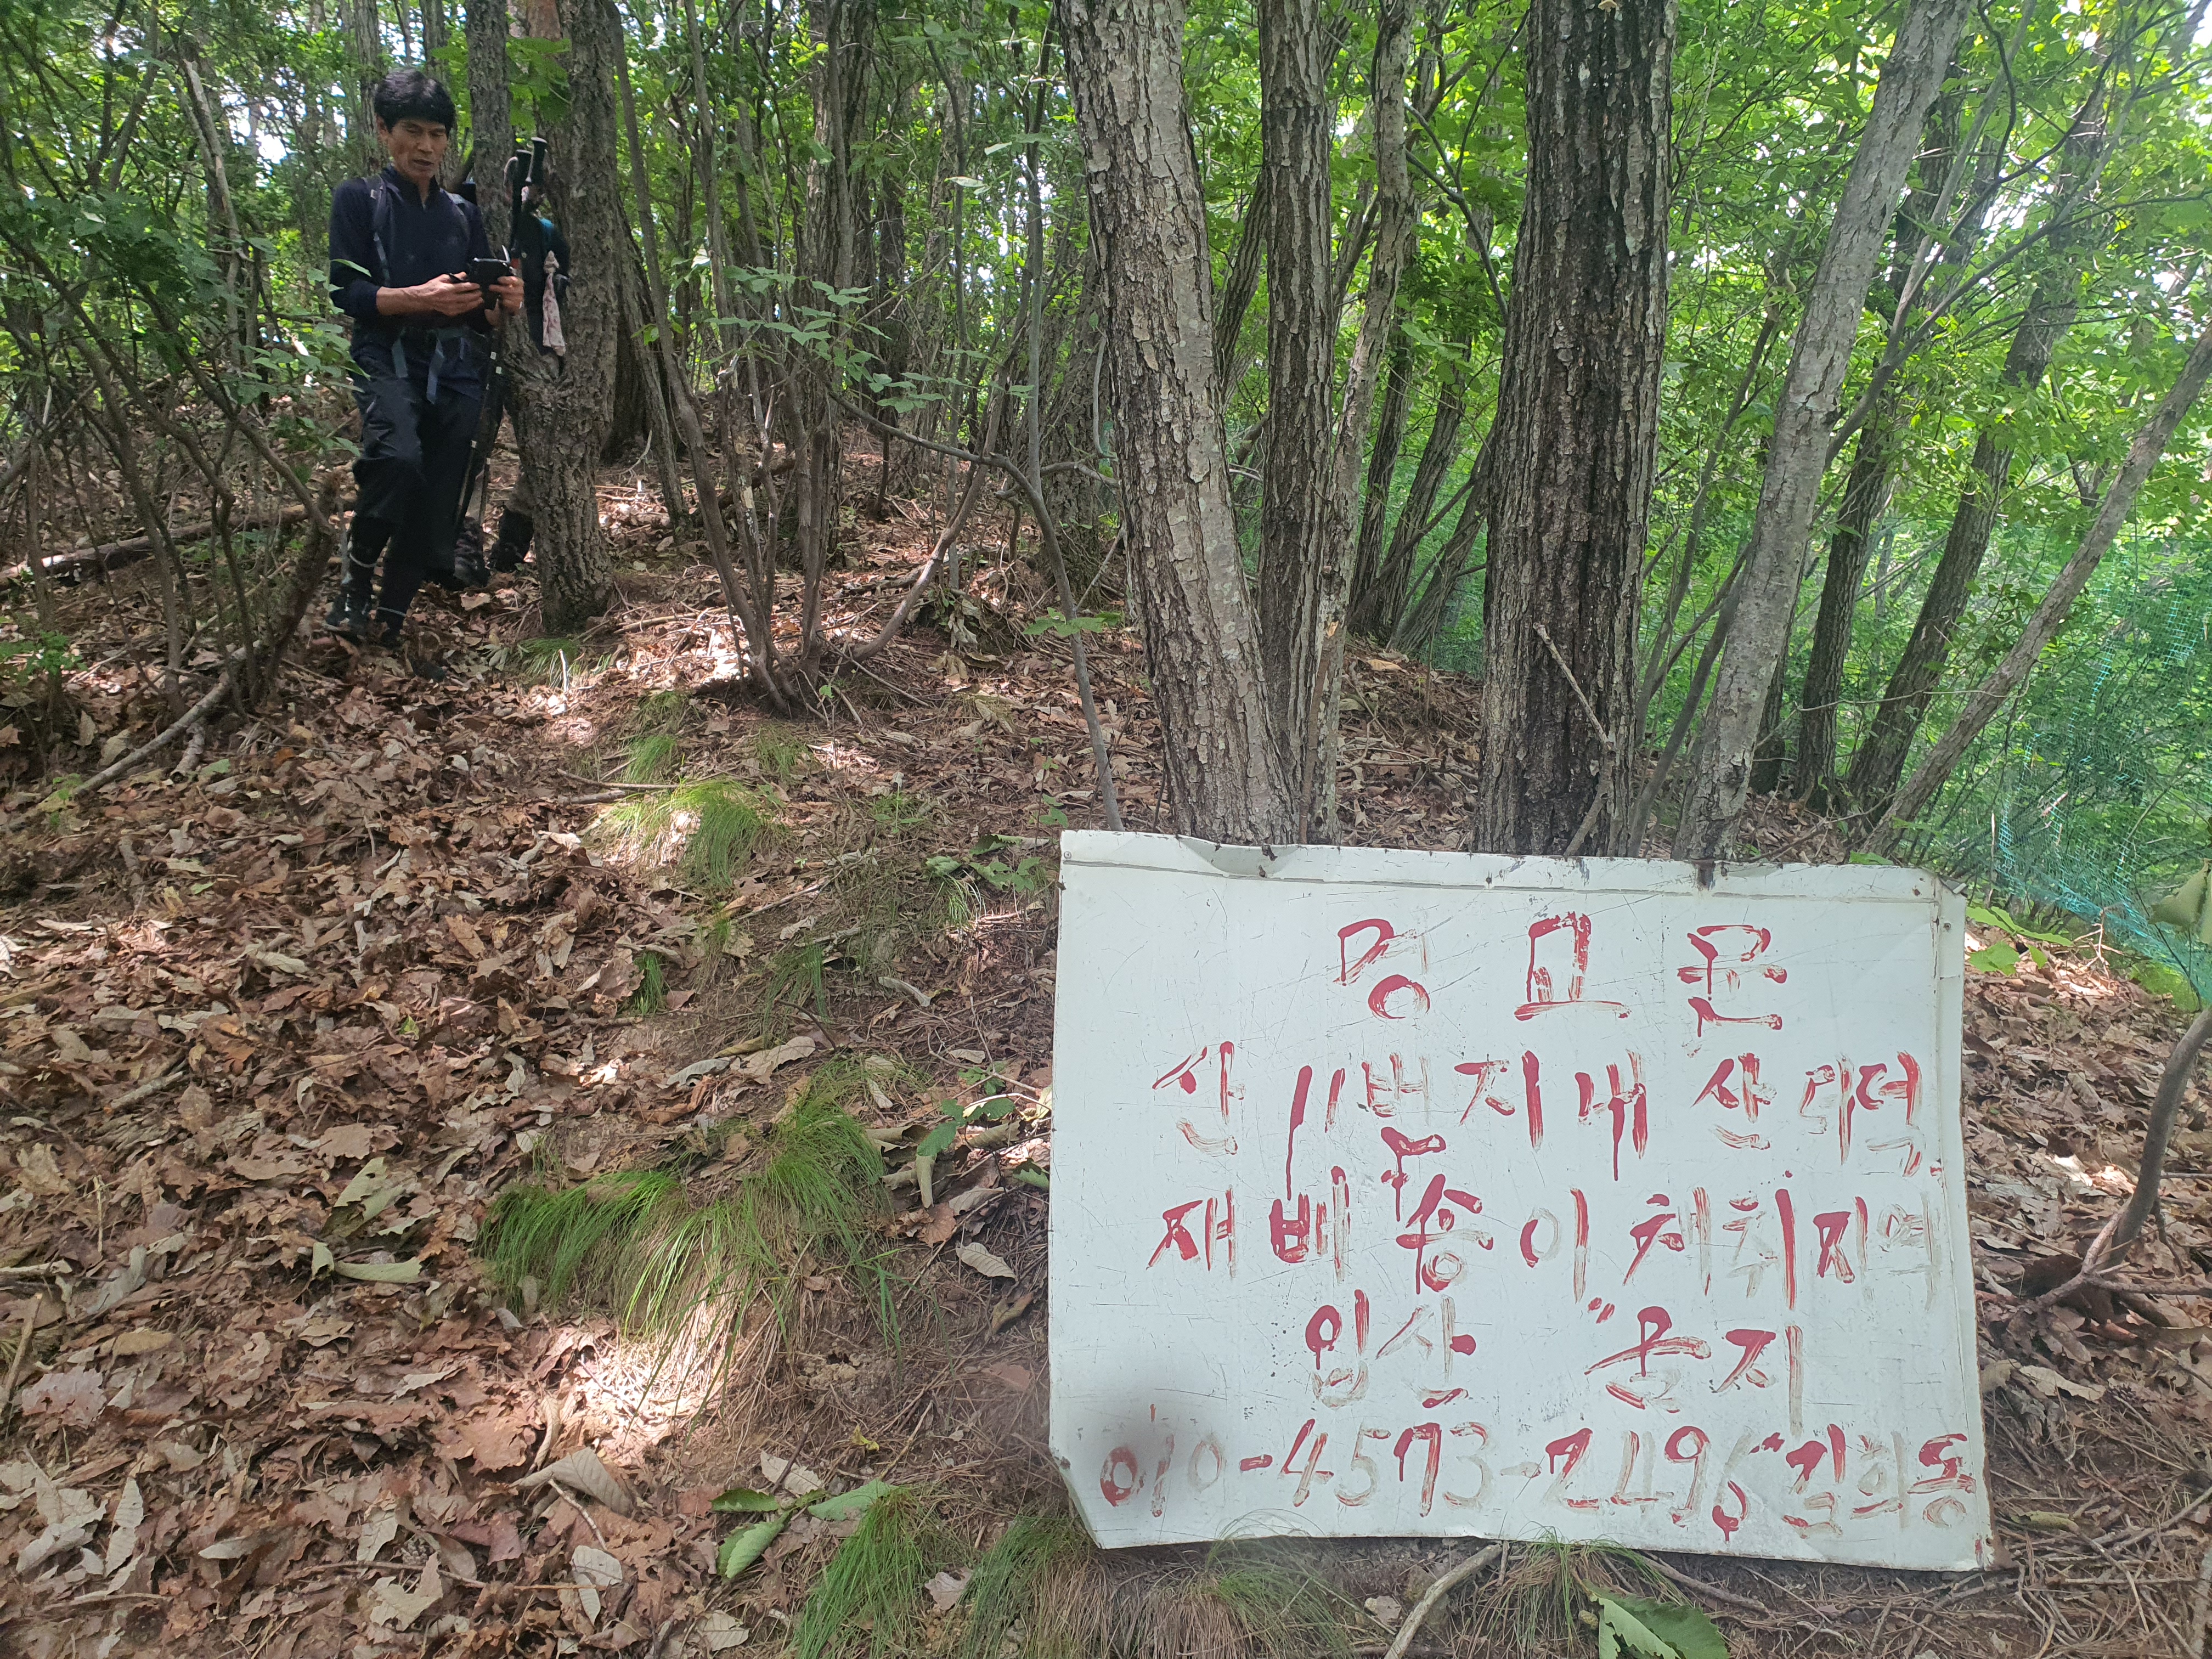 경고문
산 11번지내 산더덕
재배 및 송이 채취지역
입산 "금지
010-4573-2496 "김희동